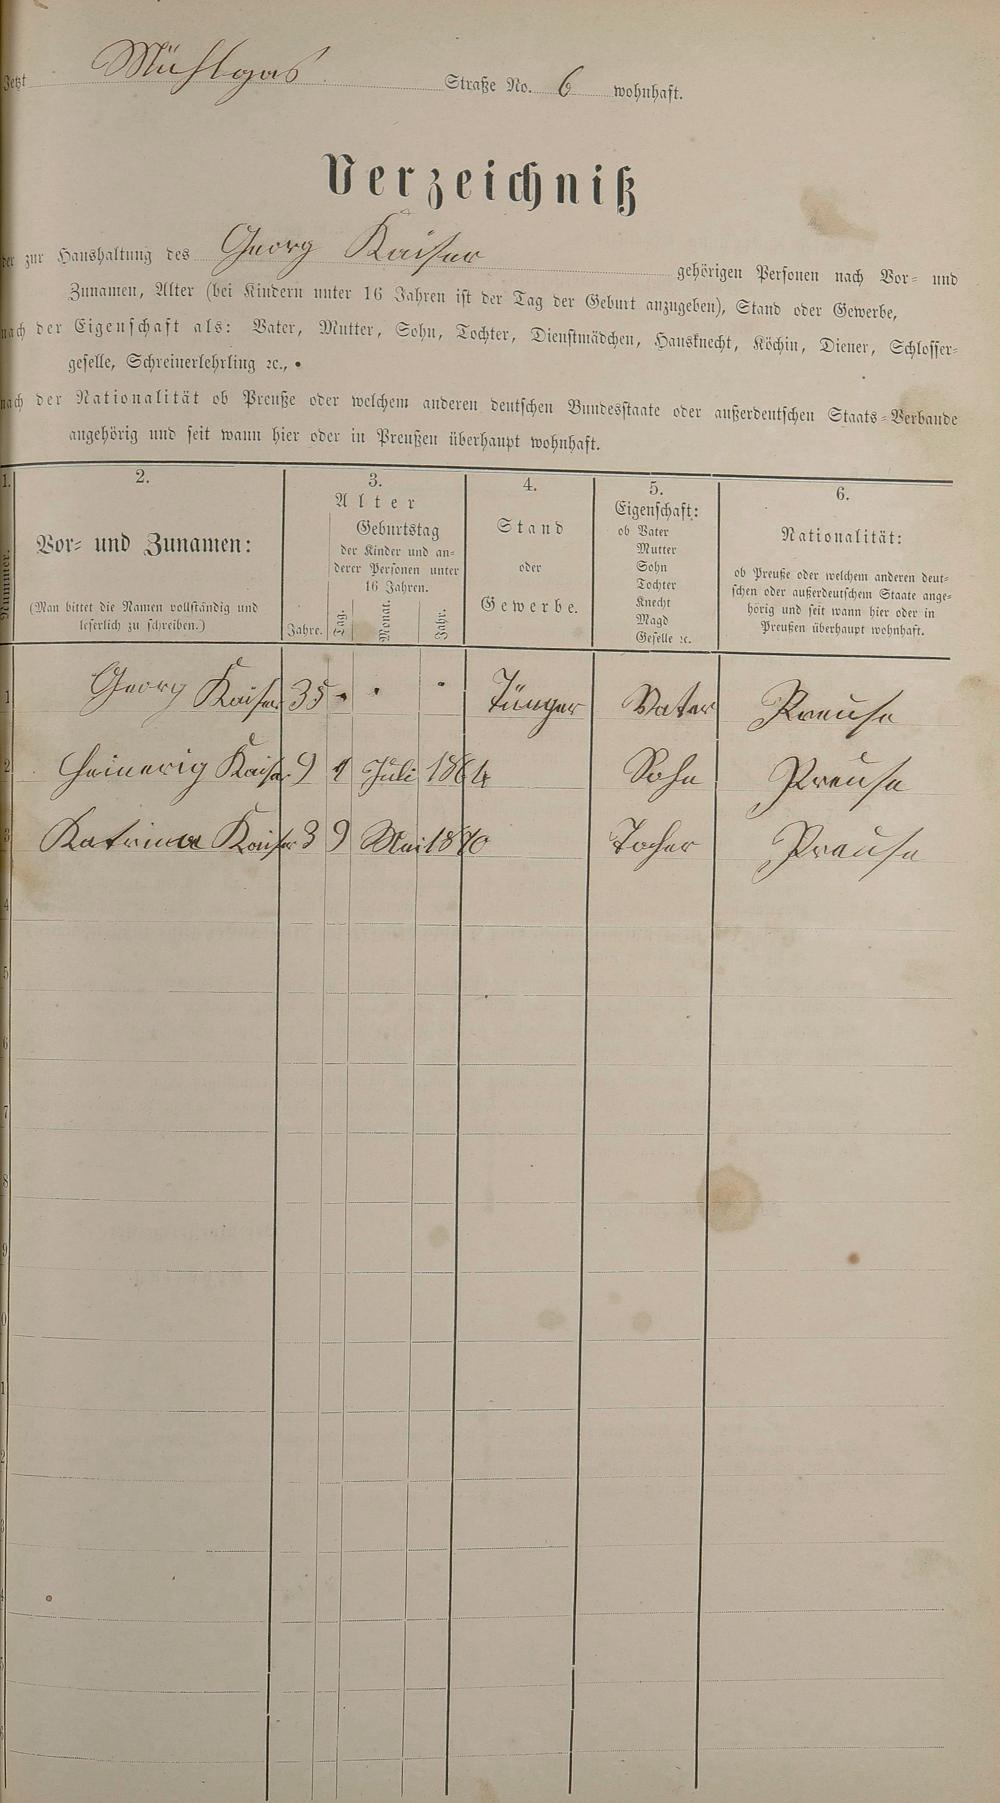 Jetzt Mühlgas Straße No. 6 wohnhaft.
Verzeichniß
der zur Haushaltung des Georg Kaiser gehörigen Personen nach Vor- und
Zunamen, Alter (bei Kindern unter 16 Jahren ist der Tag der Geburt anzugeben), Stand oder Gewerbe,
nach der Eigenschaft als: Vater, Mutter, Sohn, Tochter, Dienstmädchen, Hausknecht, Köchin, Diener, Schlosser-
geselle, Schreinerlehrling ꝛc.,
nach der Nationalität ob Preuße oder welchem anderen deutschen Bundesstaate oder außerdeutschen Staats-Verbande
angehörig und seit wann hier oder in Preußen überhaupt wohnhaft.
1. 2. 3. 4. 5. 6.
Nummer.
Vor- und Zunamen:
(Man bittet die Namen vollständig und
leserlich zu schreiben.)
Alter
Geburtstag
der Kinder und an-
derer Personen unter
16 Jahren.
Jahre. Tag. Monat. Jahr.
Stand
oder
Gewerbe.
Eigenschaft:
ob Vater
Mutter
Sohn
Tochter
Knecht
Magd
Geselle ꝛc.
Nationalität:
ob Preuße oder welchem anderen deut-
schen oder außerdeutschem Staate ange-
hörig und seit wann hier oder in
Preußen überhaupt wohnhaft.
1 Georg Kaiser 35 Tünger Vater Preuse
2 Heinerig Kaiser 9 4 Juli 1864 Sohn Preuse
3 Katrina Kaiser 3 9 Mai 1870 Tocher Preuse
4
5
6
7
8
9
0
1
2
3
4
5
6